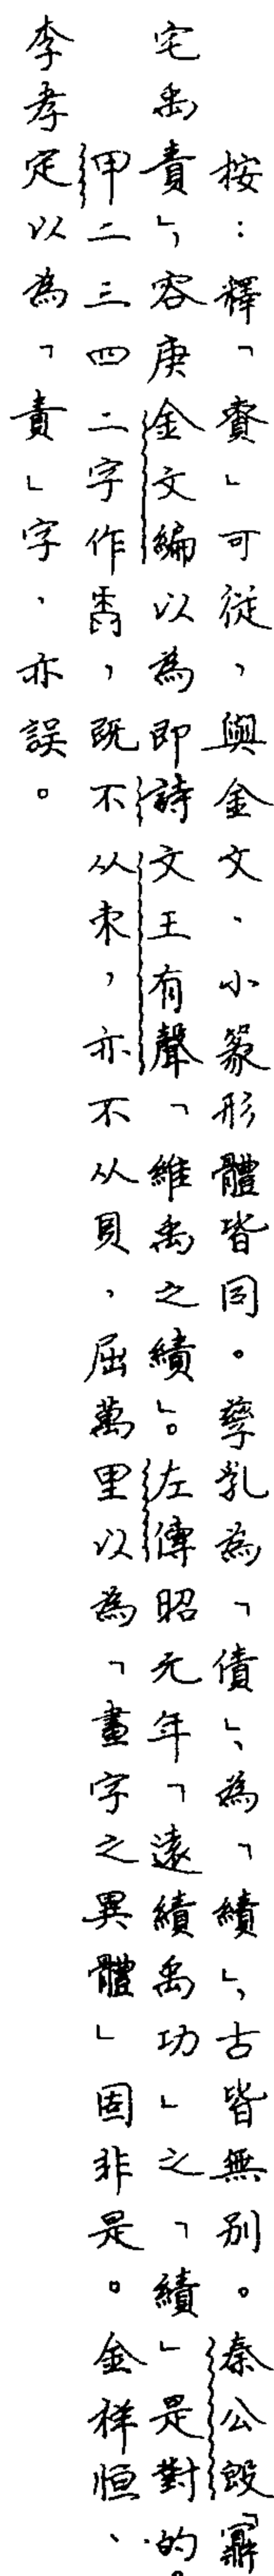 按：釋「賷」可從，與金文、小篆形體皆同。孳乳為「債」、為「績」，古皆無別。秦公𣪘「鼏
宅禹責」，容庚金文編以為即詩文王有聲「維禹之績」。左傳昭元年「遠績禹功」之「績」是對的。
甲二三四二字作，既不从朿，亦不从貝，屈萬里以為「畫字之異體」固非是。金祥恒、
李孝定以為「責」字，亦誤。